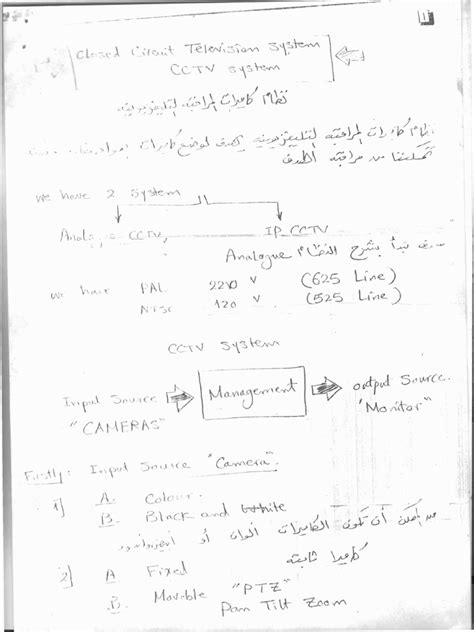 1
Closed Circuit Television system
CCTV system
نظام كاميرات المراقبه التليفزيونيه
نظام كاميرات المراقبه التليفزيونيه
تمكننا من مراقبة
we have 2 system
CCTV, IP CCTV
سوف نبدأ بشرح النظام Analogue
we have PAL 220 V (625 Line)
NTSC 120 V (525 Line)
CCTV system
Input Source Management output Source.
"CAMERAS" "Monitor"
Firstly: Input Source "Camera".
1] A. Colour.
B. Black and White
من الممكن أن تكون الكاميرات ألوان أو
2] A Fixed كاميرا ثابته
B. Movable "PTZ"
Pan Tilt Zoom